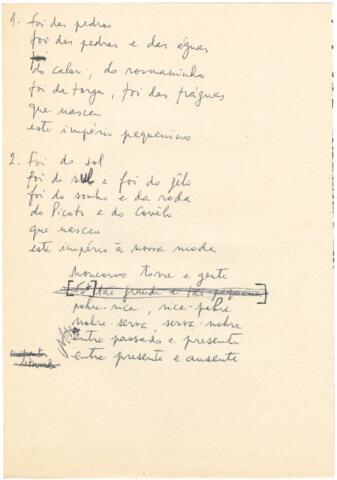 1. Foi das pedras
foi das pedras e das águas
foi
do calor, do rosmaninho
foi da torga, foi das fráguas
que nasceu
este império pequenino
2. Foi do sol
foi do sul e foi do gêlo
foi do sonho e da roda
do Picoto e do Covelo
que nasceu
este império à nossa moda
Moncorvo torre e gente
tão grande e tão pequena
pobre-rica, rica-pobre
nobre-serva, serva-nobre
entre passado e presente
entre presente e ausente